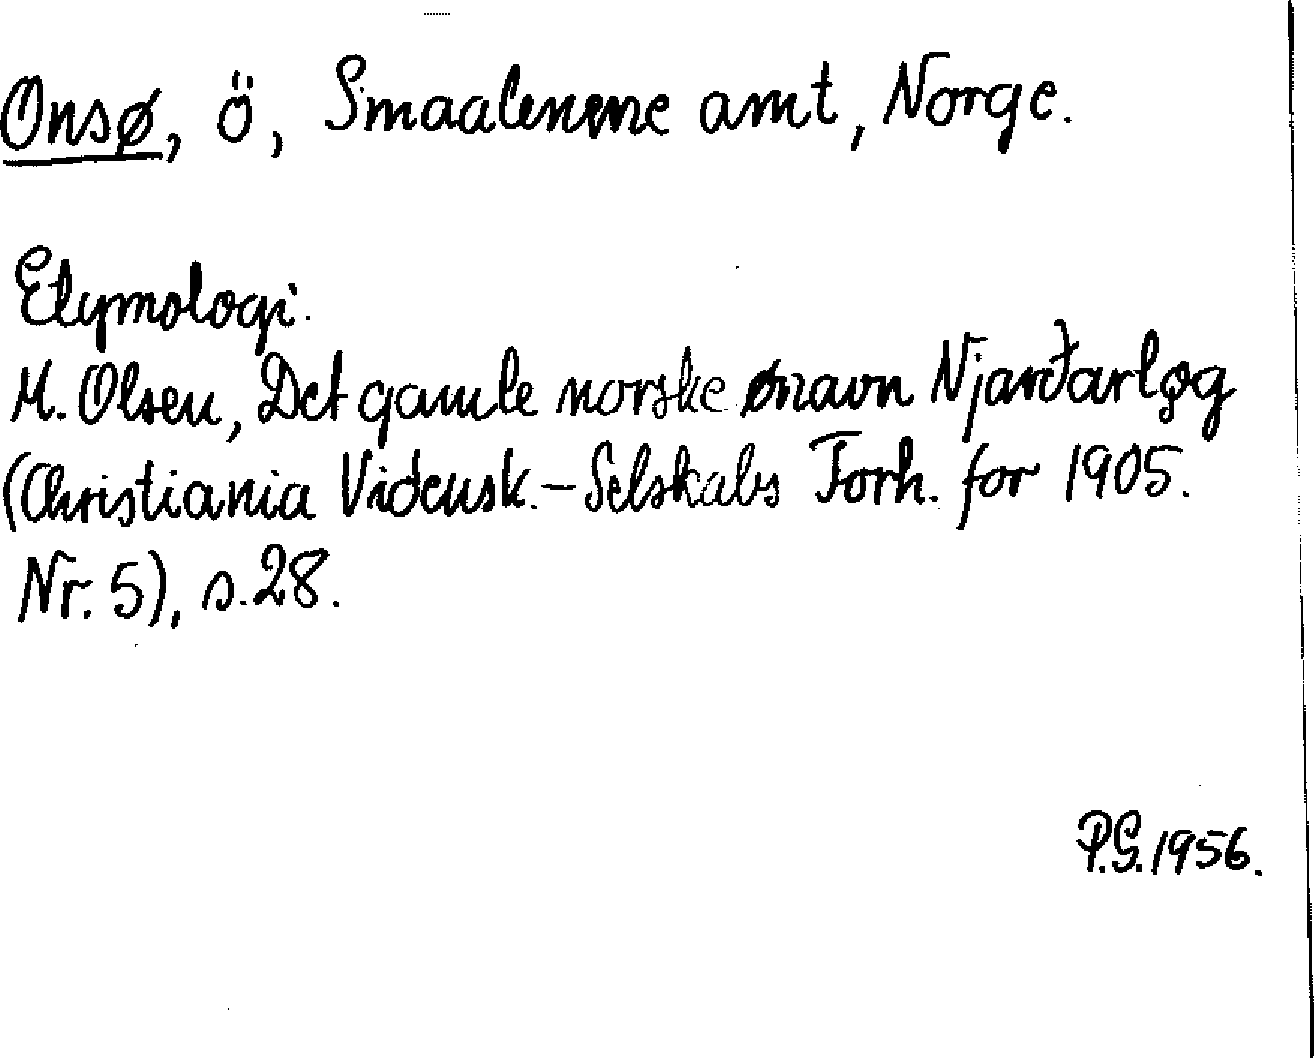 Onsø, ö, Smaalenene amt, Norge.
Etymologi.
M. Olsen, Det gamle norske ønavn Njarðarlǫg
(Christiania Vidensk.-Selskabs Forh. for 1905.
Nr. 5), s. 28.
P.G. 1956.